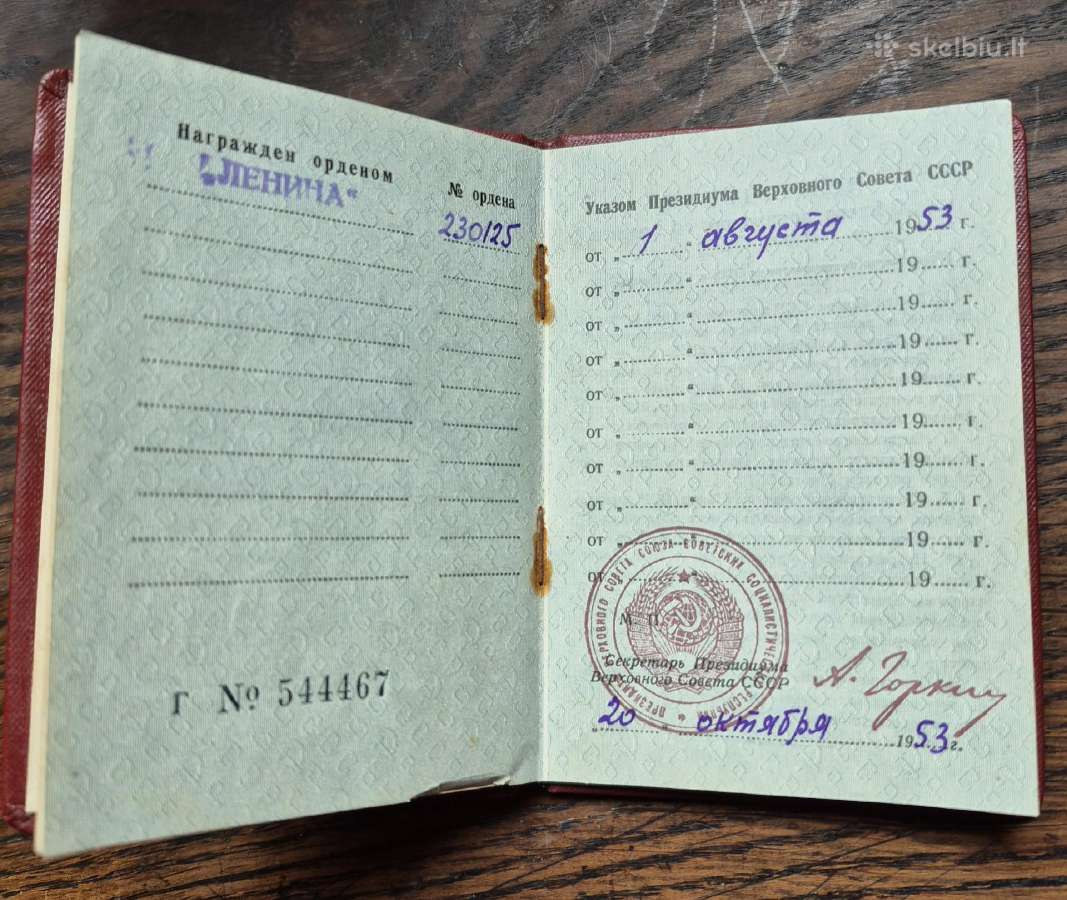 skelbiu.lt
Награжден орденом
№ ордена
„ЛЕНИНА“
230125
Г № 544467
Указом Президиума Верховного Совета СССР
от „ 1 “ августа 1953 г.
от „ “ 19 г.
от „ “ 19 г.
от „ “ 19 г.
от „ “ 19 г.
от „ “ 19 г.
от „ “ 19 г.
от „ “ 19 г.
от „ “ 19 г.
от „ “ 19 г.
М. П.
Секретарь Президиума
Верховного Совета СССР
А. Горкин
„20 “ октября 1953 г.